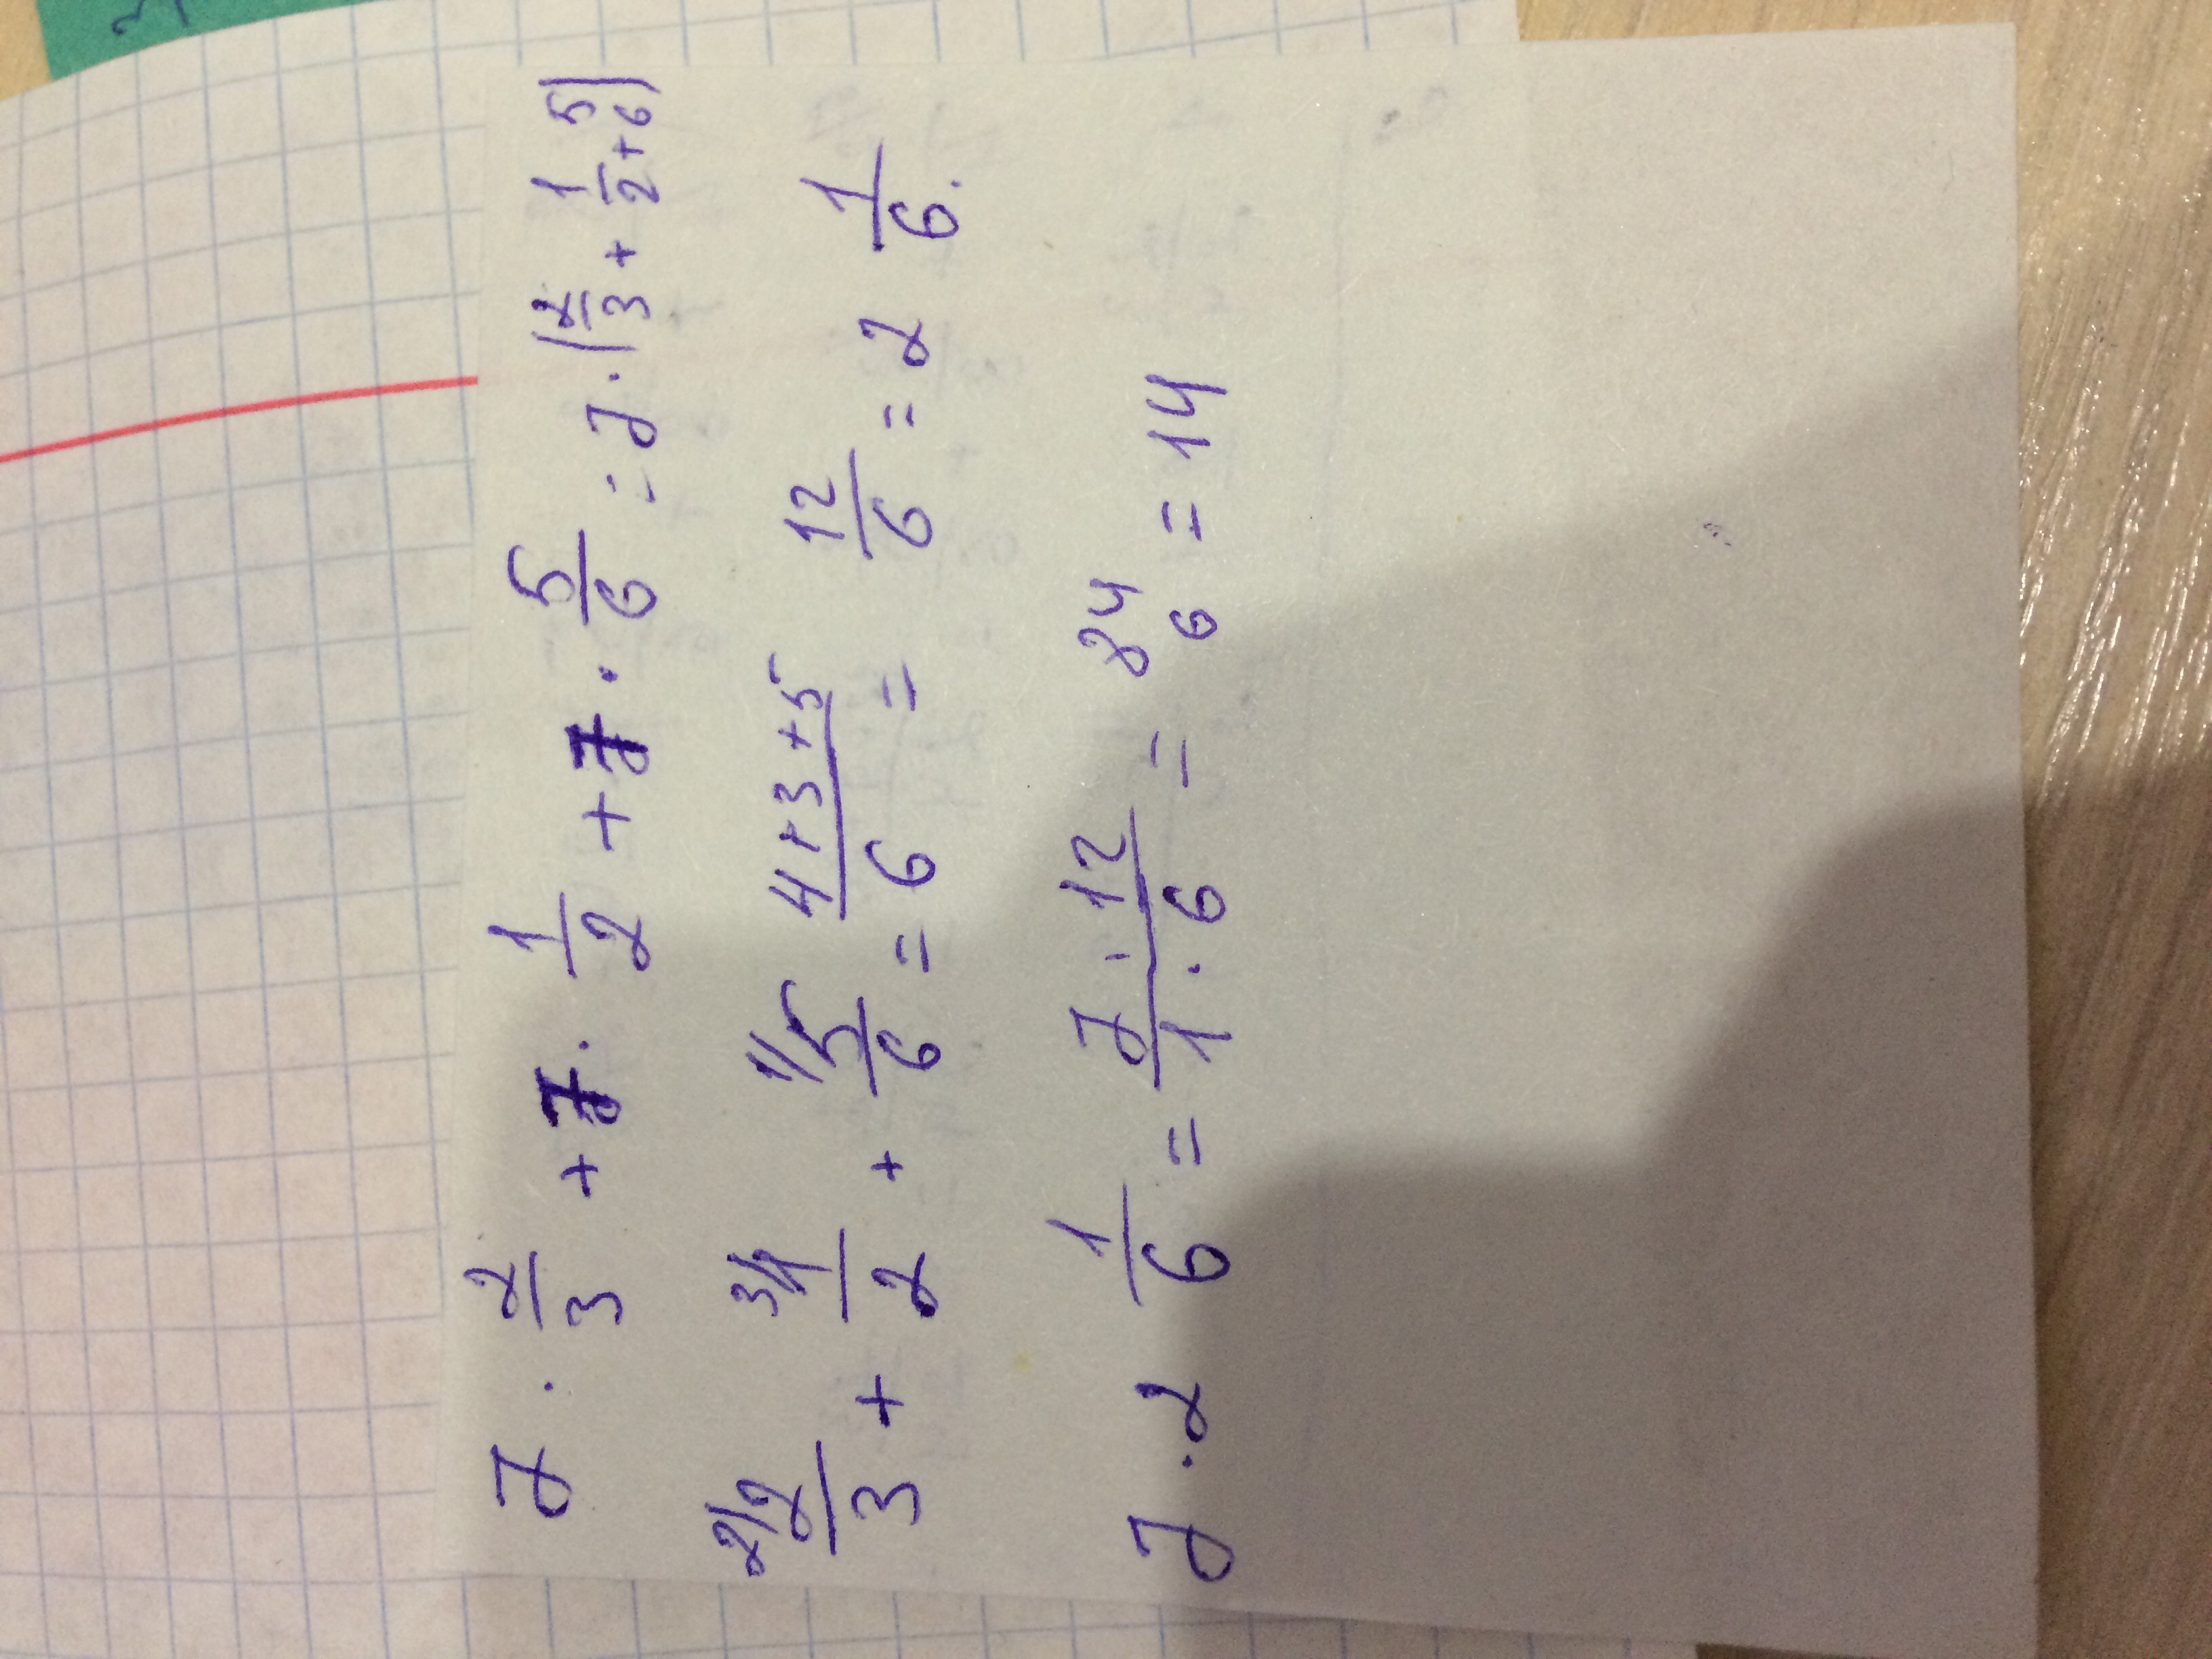 7 · 2/3 + 7 · 1/2 + 7 · 5/6 = 7 · (2/3 + 1/2 + 5/6)
2/ 2/3 + 3/ 1/2 + 1/ 5/6 = (4+3+5)/6 = 12/6 = 2 1/6.
7 · 2 1/6 = (7 · 12)/(1 · 6) = 84/6 = 14